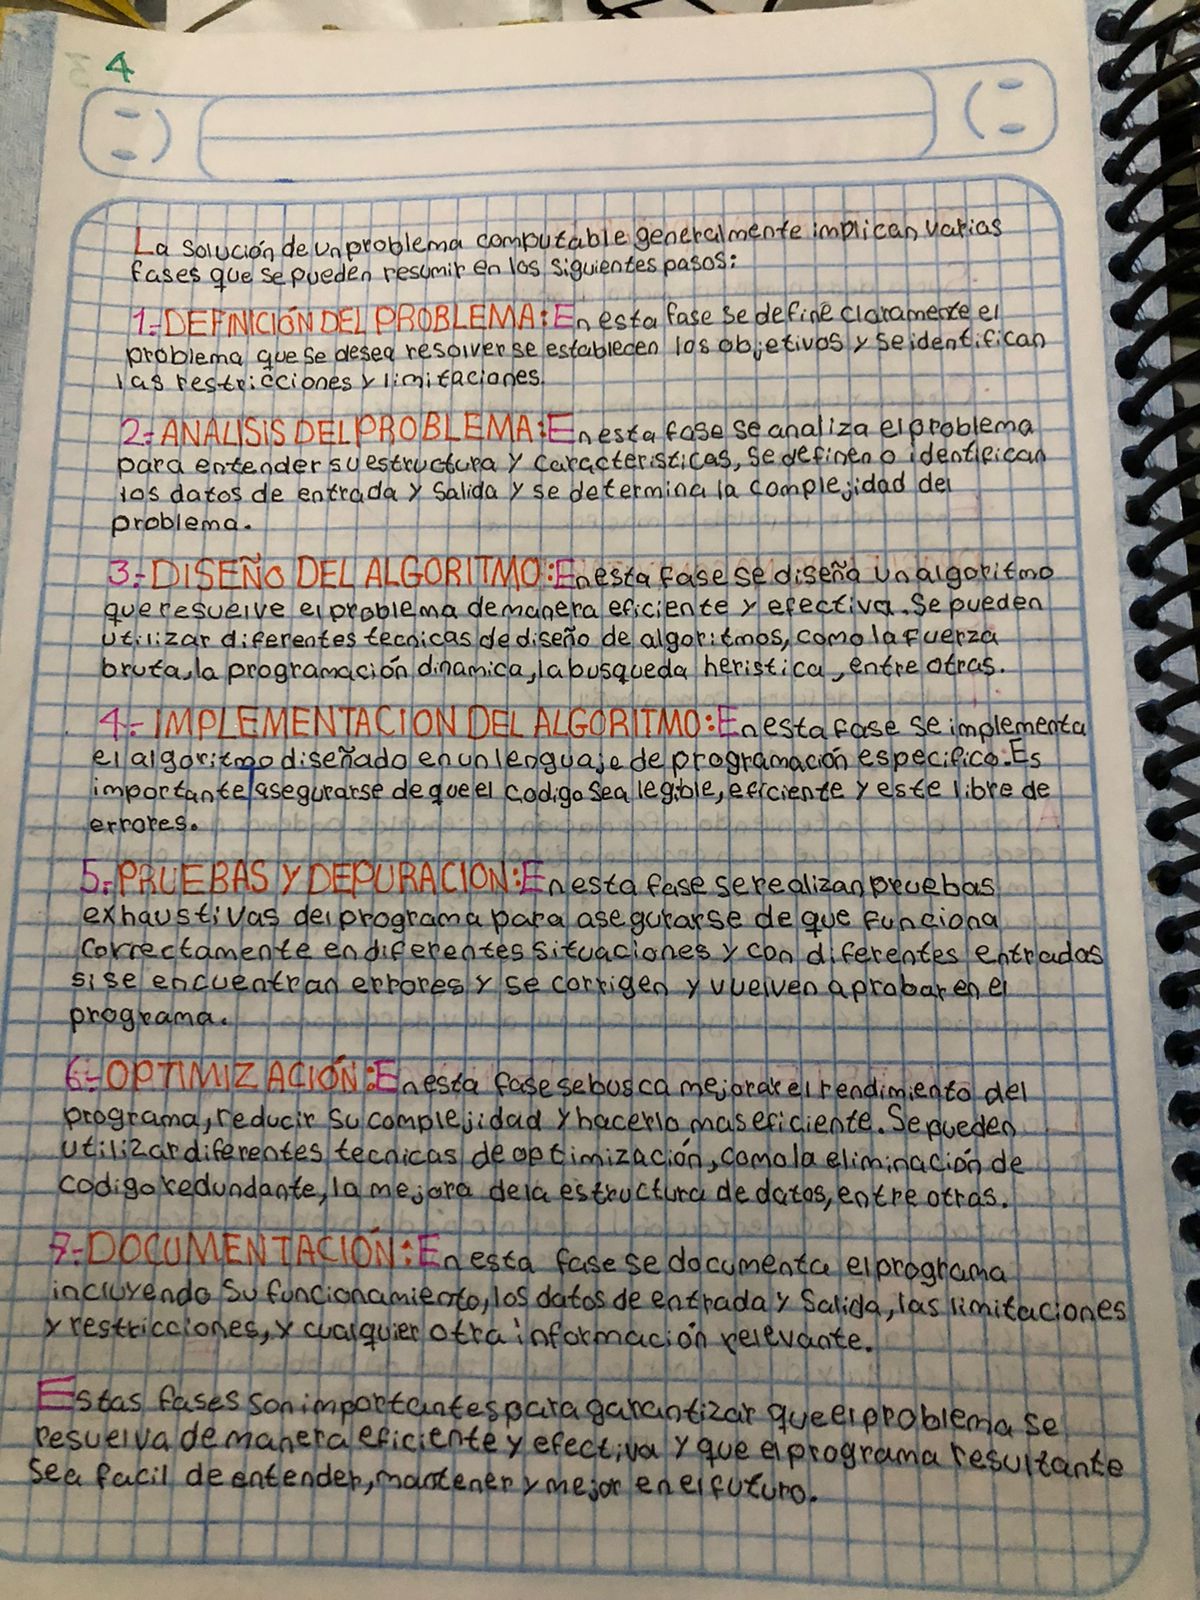 4
La solución de un problema computable generalmente implican varias
fases que se pueden resumir en los siguientes pasos:
1.- DEFINICIÓN DEL PROBLEMA: En esta fase se define claramente el
problema que se desea resolver se establecen los objetivos y se identifican
las restricciones y limitaciones.
2.- ANALISIS DEL PROBLEMA: En esta fase se analiza el problema
para entender su estructura y caracteristicas, se definen o identifican
los datos de entrada y salida y se determina la complejidad del
problema.
3.- DISEÑO DEL ALGORITMO: En esta fase se diseña un algoritmo
que resuelve el problema de manera eficiente y efectiva. Se pueden
utilizar diferentes tecnicas de diseño de algoritmos, como la fuerza
bruta, la programación dinamica, la busqueda heristica, entre otras.
4.- IMPLEMENTACION DEL ALGORITMO: En esta fase se implementa
el algoritmo diseñado en un lenguaje de programación especifico. Es
importante asegurarse de que el codigo sea legible, eficiente y este libre de
errores.
5.- PRUEBAS Y DEPURACION: En esta fase se realizan pruebas
exhaustivas del programa para asegurarse de que funciona
correctamente en diferentes situaciones y con diferentes entradas
si se encuentran errores y se corrigen y vuelven a probar en el
programa.
6.- OPTIMIZACIÓN: En esta fase se busca mejorar el rendimiento del
programa, reducir su complejidad y hacerlo mas eficiente. Se pueden
utilizar diferentes tecnicas de optimización, como la eliminación de
codigo redundante, la mejora de la estructura de datos, entre otras.
7.- DOCUMENTACIÓN: En esta fase se documenta el programa
incluyendo su funcionamiento, los datos de entrada y salida, las limitaciones
y restricciones, y cualquier otra información relevante.
Estas fases son importantes para garantizar que el problema se
resuelva de manera eficiente y efectiva y que el programa resultante
sea facil de entender, mantener y mejor en el futuro.